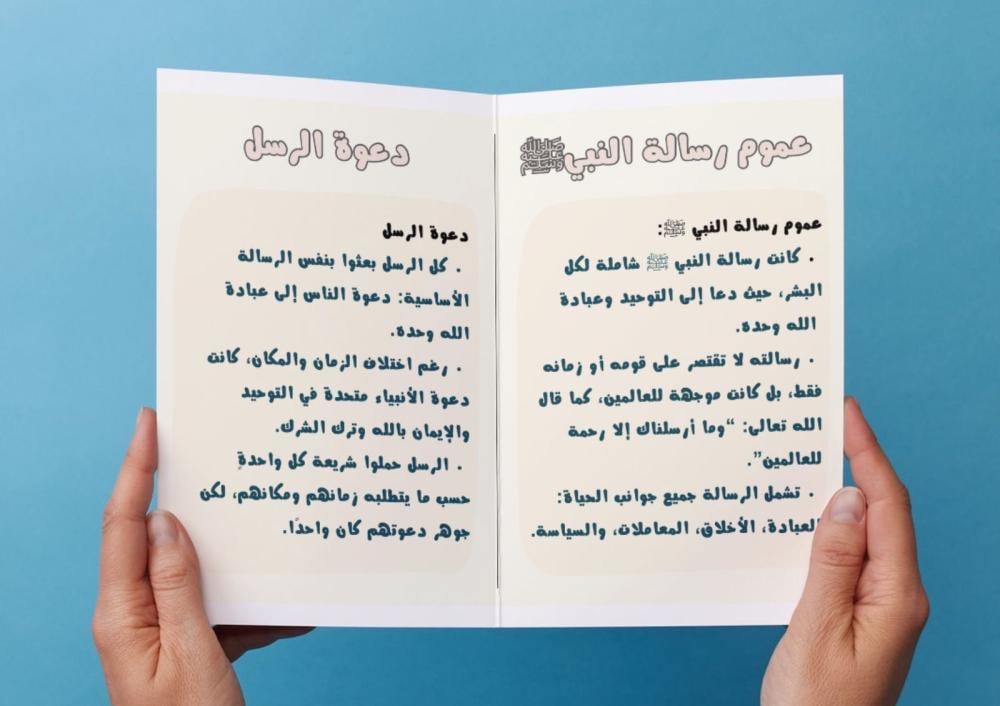 عموم رسالة النبي ﷺ
عموم رسالة النبي ﷺ:
. كانت رسالة النبي ﷺ شاملة لكل
البشر، حيث دعا إلى التوحيد وعبادة
الله وحدة.
. رسالته لا تقتصر على قومه أو زمانه
فقط، بل كانت موجهة للعالمين، كما قال
الله تعالى: “وما أرسلناك إلا رحمة
للعالمين”.
. تشمل الرسالة جميع جوانب الحياة:
العبادة، الأخلاق، المعاملات، والسياسة.
دعوة الرسل
دعوة الرسل
. كل الرسل بعثوا بنفس الرسالة
الأساسية: دعوة الناس إلى عبادة
الله وحدة.
. رغم اختلاف الزمان والمكان، كانت
دعوة الأنبياء متحدة في التوحيد
والإيمان بالله وترك الشرك.
. الرسل حملوا شريعة كل واحدةٍ
حسب ما يتطلبه زمانهم ومكانهم، لكن
جوهر دعوتهم كان واحدًا.